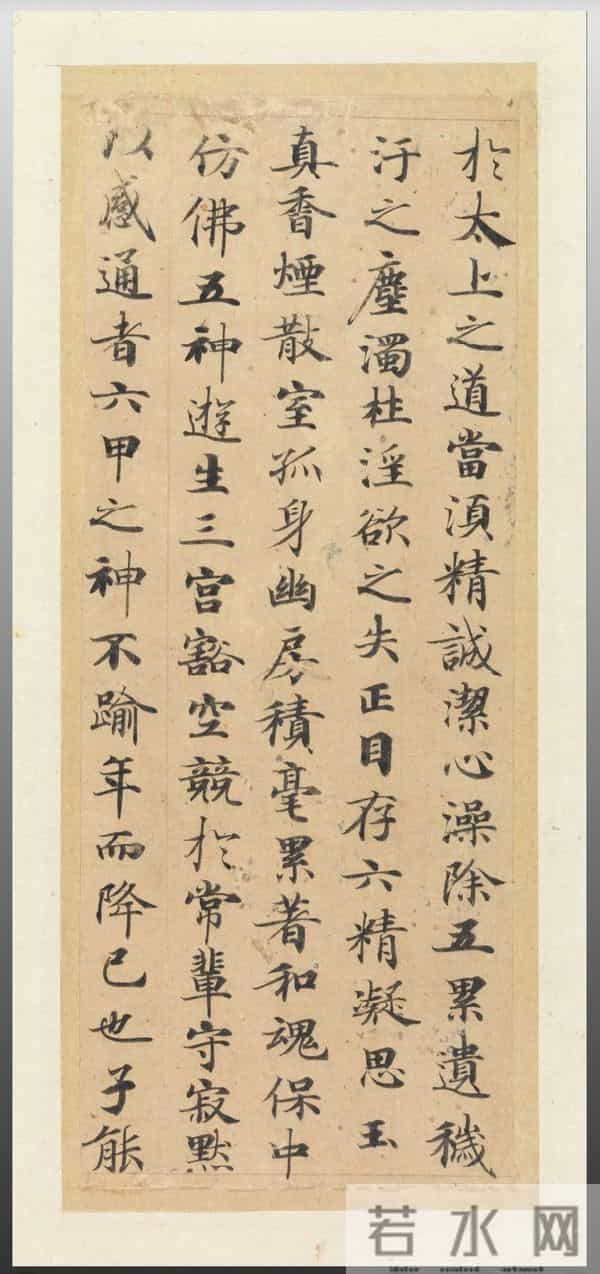 於太上之道當湏精誠潔心澡除五累遺穢
汙之塵濁杜淫欲之失正目存六精凝思玉
真香煙散室孤身幽房積毫累著和魂保中
仿佛五神遊生三宮豁空競於常輩守寂黙
以感通者六甲之神不踰年而降已也子能
若水网